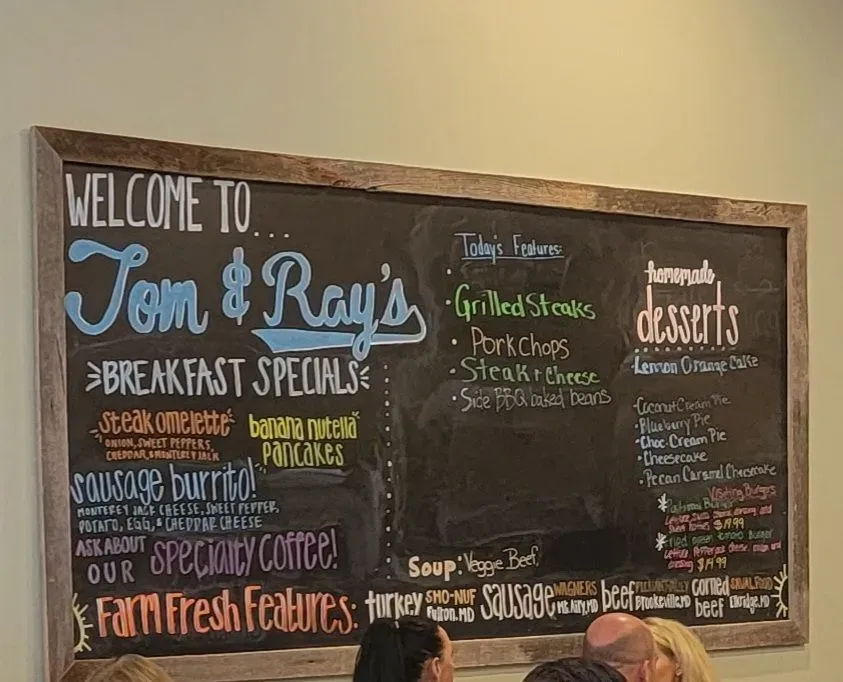 WELCOME TO...
Tom & Ray's
BREAKFAST SPECIALS
steak omelette
ONION, SWEET PEPPERS,
CHEDDAR, & MONTEREY JACK
banana nutella
pancakes
sausage burrito!
MONTEREY JACK CHEESE, SWEET PEPPER,
POTATO, EGG, & CHEDDAR CHEESE
ASK ABOUT
OUR
specialty coffee!
Today's Features:
Grilled Steaks
Pork Chops
Steak + Cheese
Side BBQ baked beans
Soup: Veggie Beef
homemade
desserts
Lemon Orange Cake
Coconut Cream Pie
Blueberry Pie
Choc. Cream Pie
Cheesecake
Pecan Caramel Cheesecake
Visiting Burgers
dressing and
$19.99
green tomato Burger
Lettuce, Pepperjack cheese, onion and
dressing $14.99
Farm Fresh Features:
turkey
SHO-NUF
Fulton.MD
sausage
WAGNERS
Mt. Airy, MD
beef
Brookeville, MD
corned
beef
Elkridge, MD